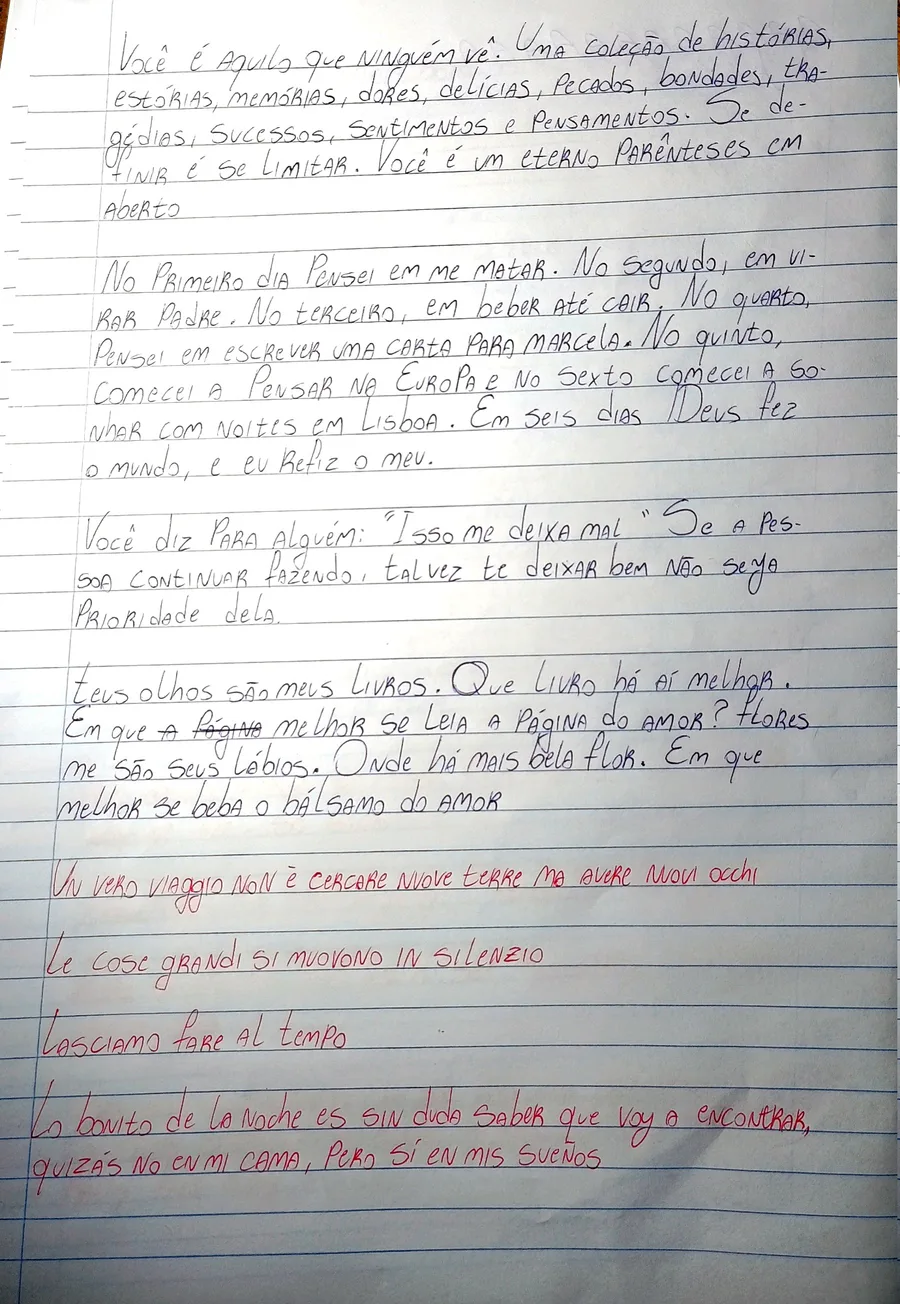 Você é aquilo que ninguém vê. Uma coleção de histórias,
estórias, memórias, dores, delícias, pecados, bondades, tra-
gédias, sucessos, sentimentos e pensamentos. Se de-
finir é se limitar. Você é um eterno parênteses em
aberto
No primeiro dia pensei em me matar. No segundo, em vi-
rar padre. No terceiro, em beber até cair. No quarto,
pensei em escrever uma carta para Marcela. No quinto,
comecei a pensar na Europa e no sexto comecei a so-
nhar com noites em Lisboa. Em seis dias Deus fez
o mundo, e eu refiz o meu.
Você diz para alguém: "Isso me deixa mal" Se a pes-
soa continuar fazendo, talvez te deixar bem não seja
prioridade dela.
teus olhos são meus livros. Que livro há aí melhor.
Em que a página melhor se leia a página do amor? flores
me são seus lábios. Onde há mais bela flor. Em que
melhor se beba o bálsamo do amor
Un vero viaggio non è cercare nuove terre ma avere nuovi occhi
Le cose grandi si muovono in silenzio
Lasciamo fare al tempo
Lo bonito de la noche es sin duda saber que voy a encontrar,
quizás no en mi cama, pero sí en mis sueños